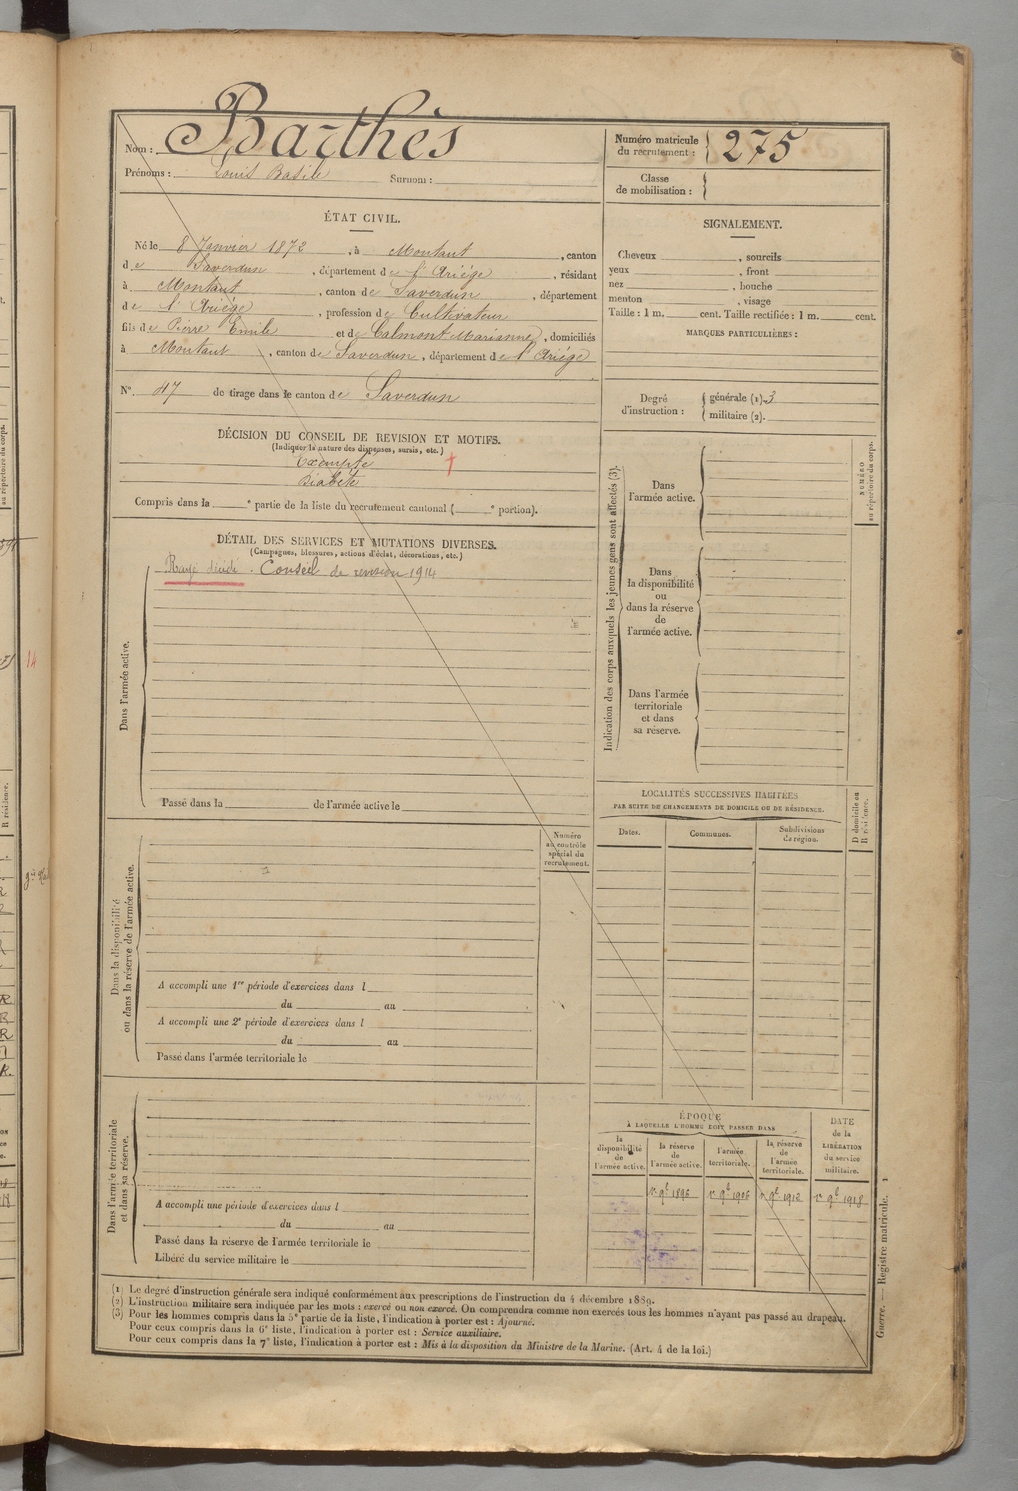 Nom : Barthès
Prénoms : Louis Basile Surnom :
Numéro matricule
du recrutement : 275
Classe
de mobilisation :
ÉTAT CIVIL.
Né le 8 Janvier 1872, à Montaut, canton
de Saverdun, département de l'Ariége, résidant
à Montaut, canton de Saverdun, département
de l'Ariége, profession de Cultivateur
fils de Pierre Emile et de Calmont Marianne, domiciliés
à Montaut, canton de Saverdun, département de l'Ariége
N°. 47 de tirage dans le canton de Saverdun
DÉCISION DU CONSEIL DE REVISION ET MOTIFS.
(Indiquer la nature des dispenses, sursis, etc.)
Exempté
Diabète
Compris dans la e partie de la liste du recrutement cantonal ( e portion).
DÉTAIL DES SERVICES ET MUTATIONS DIVERSES.
(Campagnes, blessures, actions d'éclat, décorations, etc.)
Rayé décédé. Conseil de revision 1914
Dans l'armée active.
Passé dans la de l'armée active le
Numéro
au contrôle
spécial du
recrutement.
Dans la disponibilité
ou dans la réserve de l'armée active.
A accompli une 1re période d'exercices dans l
du au
A accompli une 2e période d'exercices dans l
du au
Passé dans l'armée territoriale le
Dans l'armée territoriale
et dans sa réserve.
A accompli une période d'exercices dans l
du au
Passé dans la réserve de l'armée territoriale le
Libéré du service militaire le
SIGNALEMENT.
Cheveux , sourcils
yeux , front
nez , bouche
menton , visage
Taille : 1 m. cent. Taille rectifiée : 1 m. cent.
MARQUES PARTICULIÈRES :
Degré
d'instruction :
générale (1). 3
militaire (2).
Indication des corps auxquels les jeunes gens sont affectés (3).
NUMÉRO
au répertoire du corps.
Dans
l'armée active.
Dans
la disponibilité
ou
dans la réserve
de
l'armée active.
Dans l'armée
territoriale
et dans
sa réserve.
LOCALITÉS SUCCESSIVES HABITÉES
PAR SUITE DE CHANGEMENTS DE DOMICILE OU DE RÉSIDENCE.
Dates. Communes. Subdivisions
de région.
D domicile ou
R résidence.
ÉPOQUE
À LAQUELLE L'HOMME DOIT PASSER DANS
la
disponibilité
de
l'armée active.
la réserve
de
l'armée active.
l'armée
territoriale.
la réserve
de
l'armée
territoriale.
DATE
de la
LIBÉRATION
du service
militaire.
1er 9bre 1896 1er 9bre 1906 1er 9bre 1912 1er 9bre 1918
(1) Le degré d'instruction générale sera indiqué conformément aux prescriptions de l'instruction du 4 décembre 1889.
(2) L'instruction militaire sera indiquée par les mots : exercé ou non exercé. On comprendra comme non exercés tous les hommes n'ayant pas passé au drapeau.
(3) Pour les hommes compris dans la 5e partie de la liste, l'indication à porter est : Ajourné.
Pour ceux compris dans la 6e liste, l'indication à porter est : Service auxiliaire.
Pour ceux compris dans la 7e liste, l'indication à porter est : Mis à la disposition du Ministre de la Marine. (Art. 4 de la loi.)
Guerre. — Registre matricule. 1